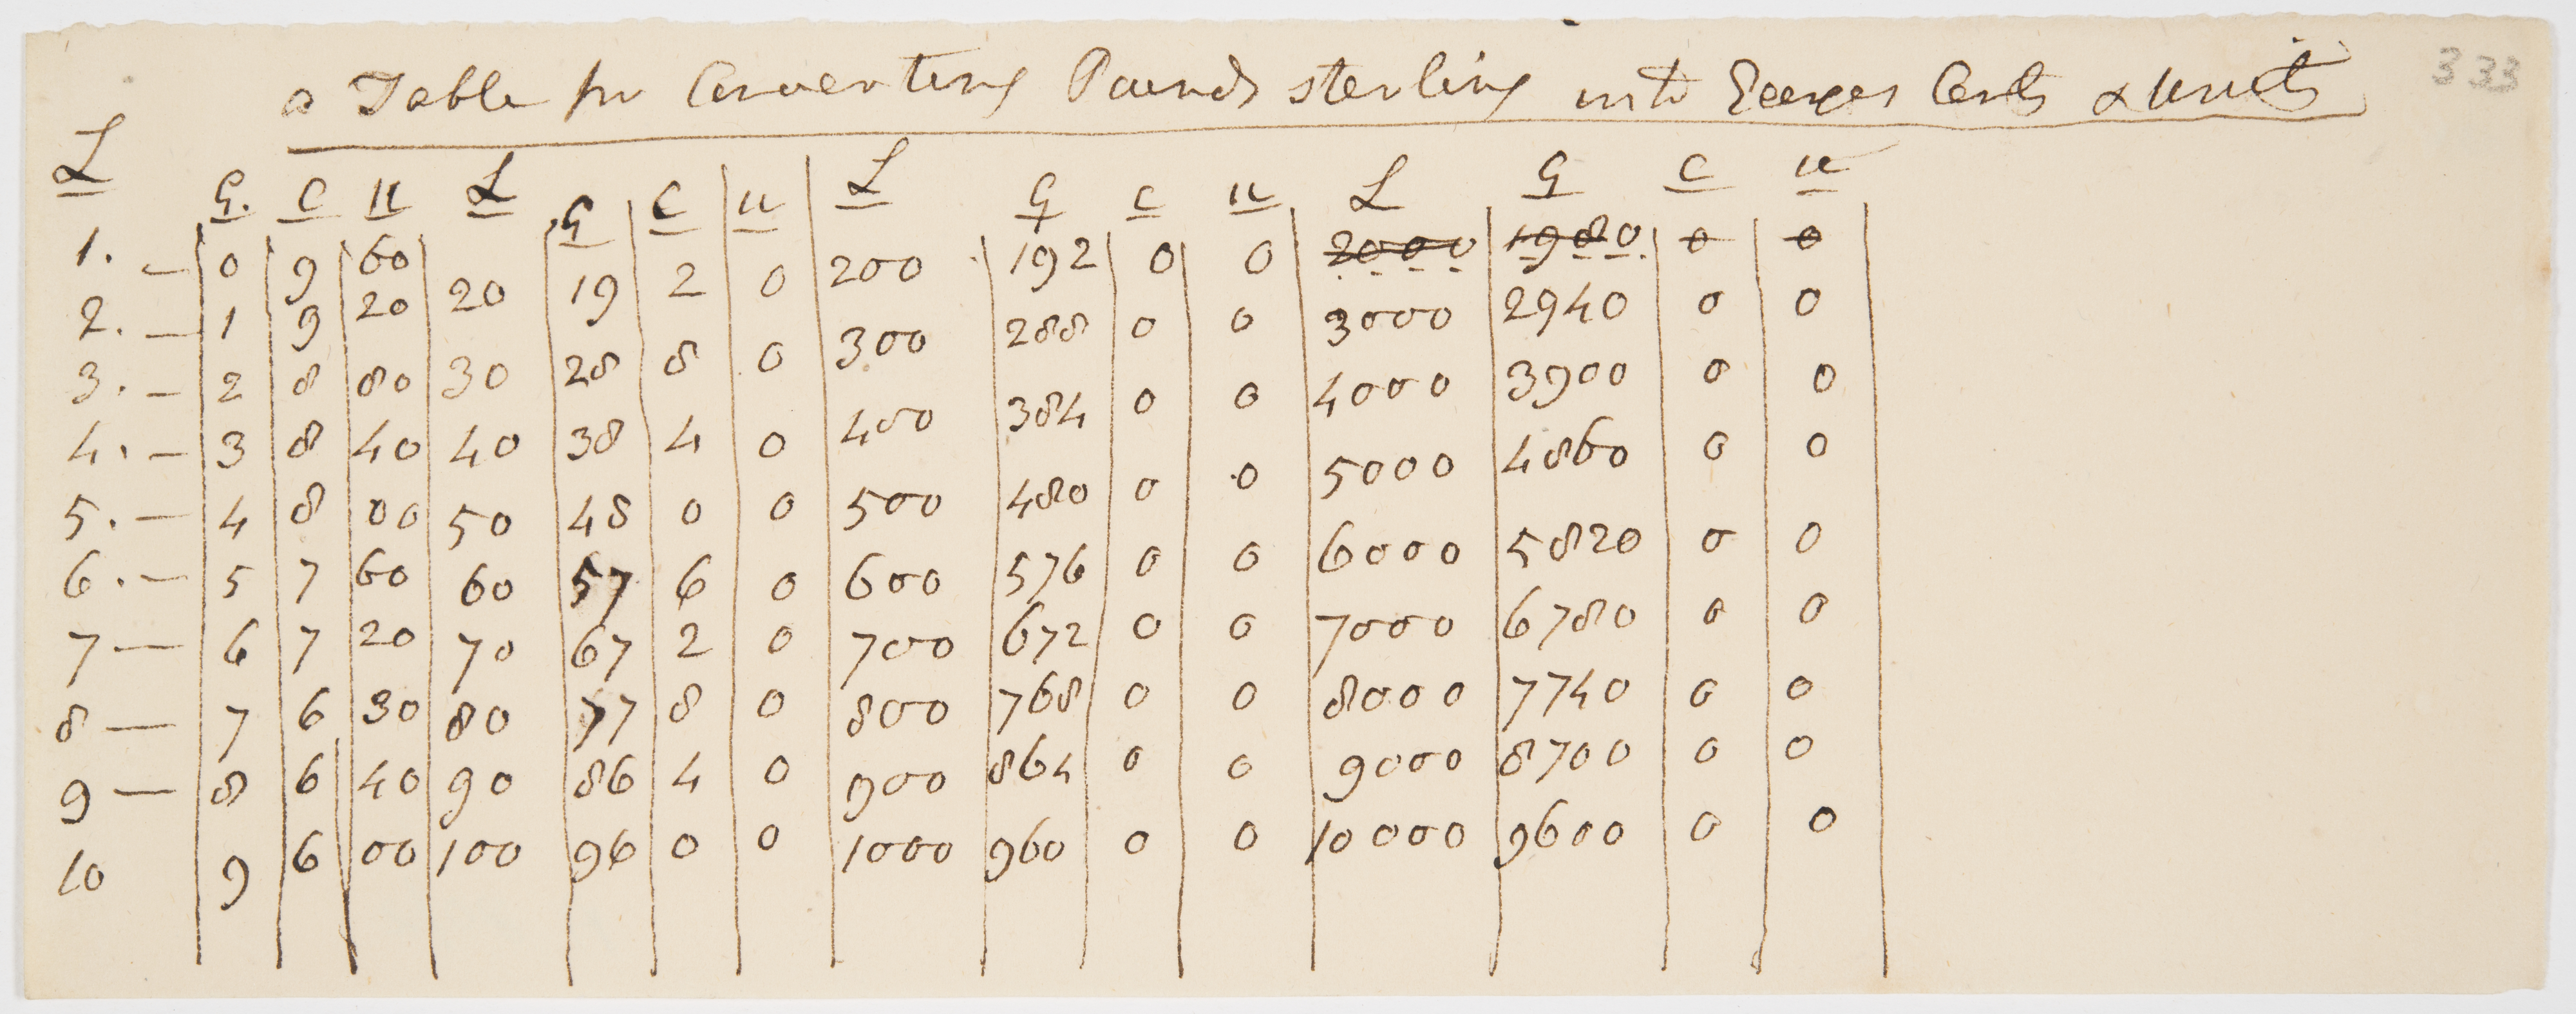 a Table for Converting Pounds sterling into Georges Cents & Units
333
L G. C U L G C U L G C U L G C U
1. – 0 9 60 200 192 0 0 2000 1980 0 0
2. – 1 9 20 20 19 2 0 300 288 0 0 3000 2940 0 0
3. – 2 8 80 30 28 8 0 400 384 0 0 4000 3900 0 0
4. – 3 8 40 40 38 4 0 500 480 0 0 5000 4860 0 0
5. – 4 8 00 50 48 0 0 600 576 0 0 6000 5820 0 0
6. – 5 7 60 60 57 6 0 700 672 0 0 7000 6780 0 0
7 – 6 7 20 70 67 2 0 800 768 0 0 8000 7740 0 0
8 – 7 6 30 80 77 8 0 900 864 0 0 9000 8700 0 0
9 – 8 6 40 90 86 4 0 1000 960 0 0 10000 9600 0 0
10 9 6 00 100 96 0 0